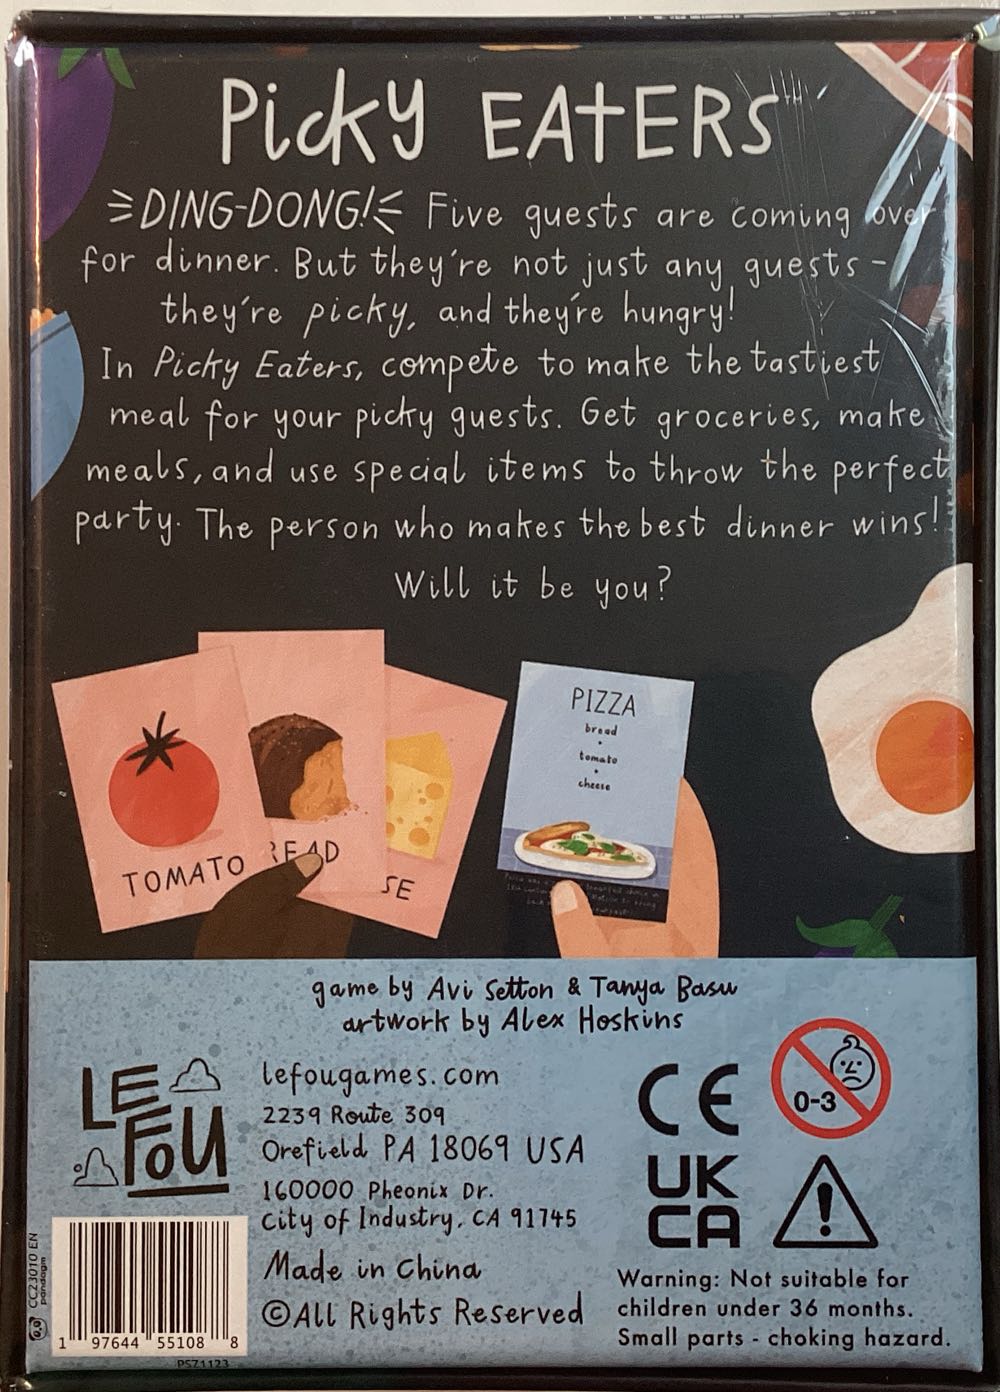 Picky EATERS
DING-DONG! Five guests are coming over
for dinner. But they're not just any guests -
they're picky, and they're hungry!
In Picky Eaters, compete to make the tastiest
meal for your picky guests. Get groceries, make
meals, and use special items to throw the perfect
party. The person who makes the best dinner wins!
Will it be you?
TOMATO
READ
SE
PIZZA
bread
+
tomato
+
cheese
game by Avi Setton & Tanya Basu
artwork by Alex Hoskins
LE
FOU
lefougames.com
2239 Route 309
Orefield PA 18069 USA
160000 Pheonix Dr.
City of Industry, CA 91745
Made in China
©All Rights Reserved
CE
0-3
UK
CA
Warning: Not suitable for
children under 36 months.
Small parts - choking hazard.
CC23010 EN
pandagm
1 97644 55108 8
PSZ1123